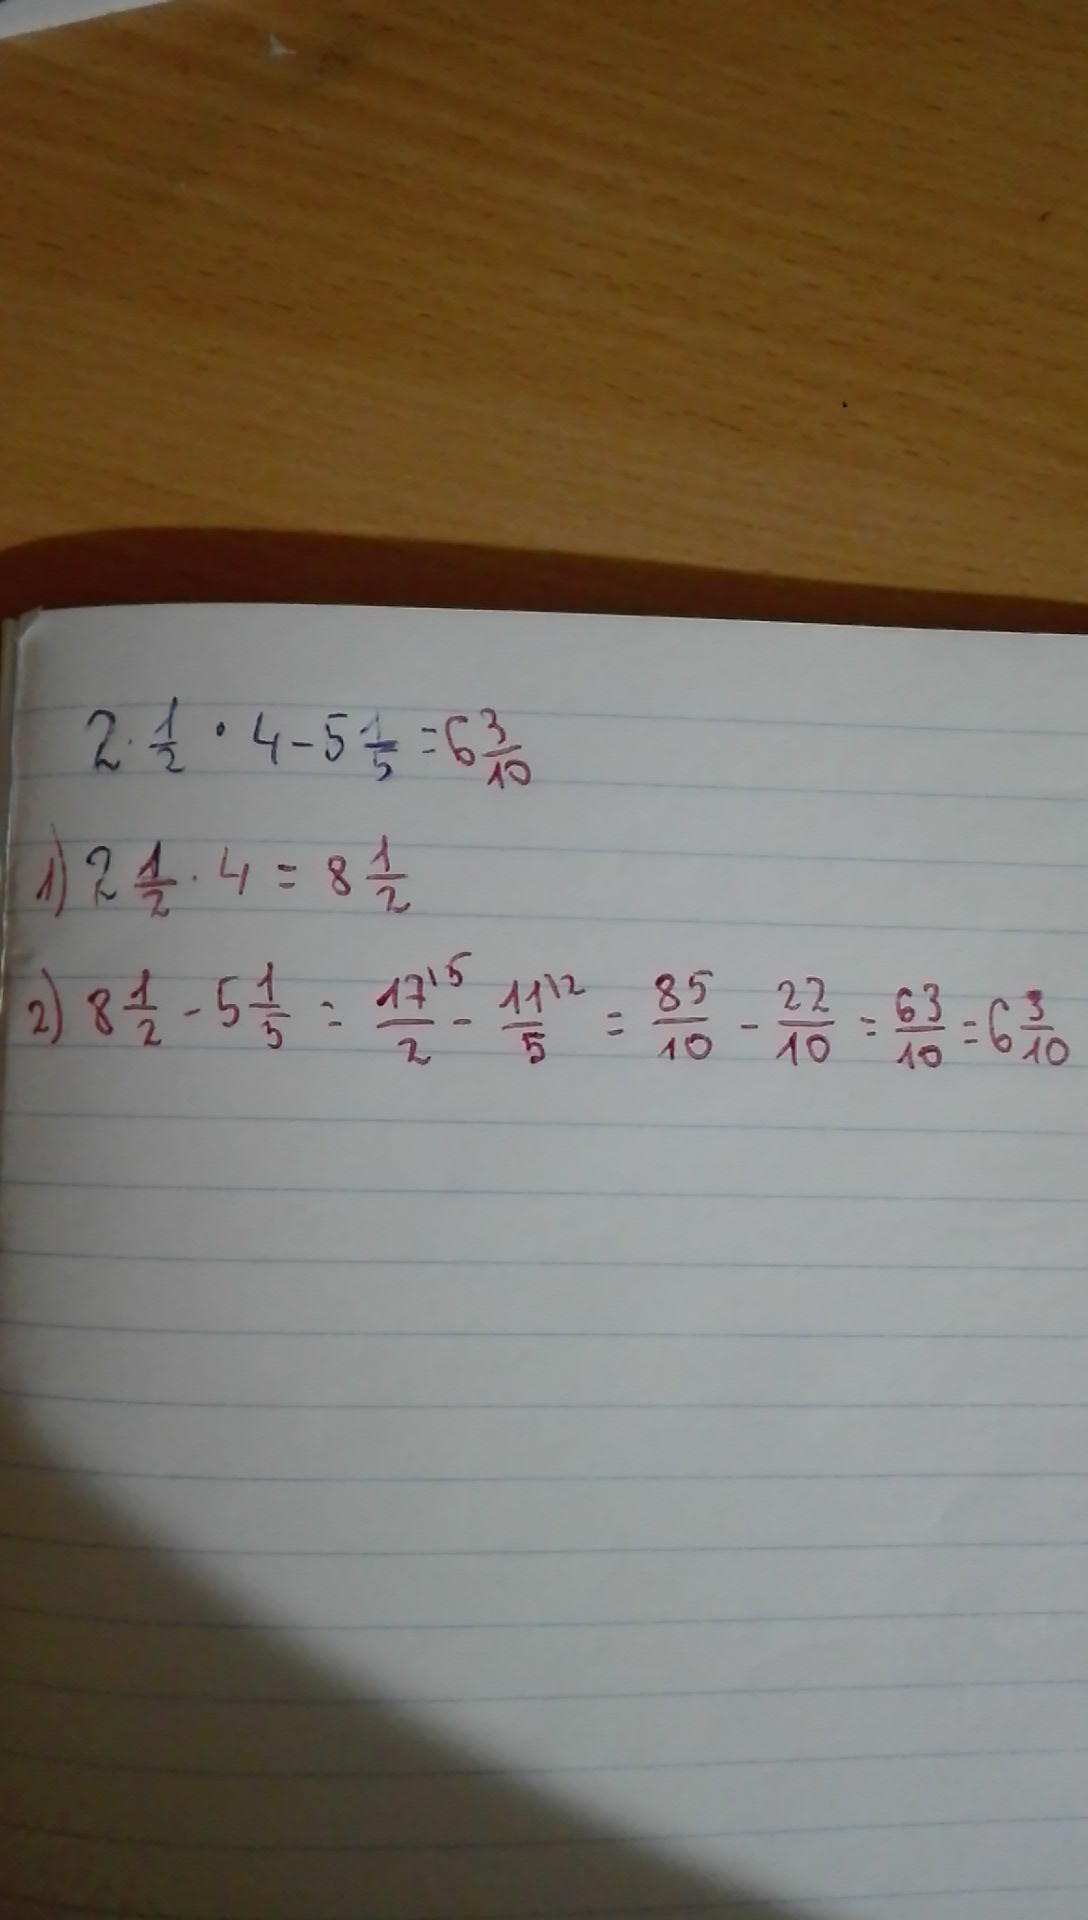 2·1/2 · 4 - 5 1/5 = 6 3/10
1) 2 1/2 · 4 = 8 1/2
2) 8 1/2 - 5 1/5 = 17\5/2 - 11\2/5 = 85/10 - 22/10 = 63/10 = 6 3/10